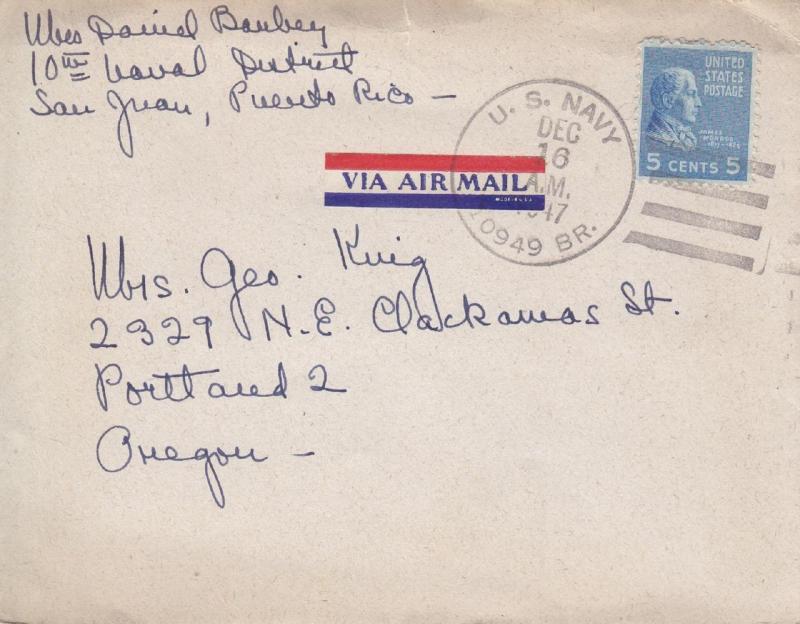 Mrs Daniel Barbey
10th Naval District
San Juan, Puerto Rico —
U. S. NAVY
DEC
16
A.M.
1947
10949 BR.
UNITED
STATES
POSTAGE
JAMES
MONROE
1817-1825
5 CENTS 5
VIA AIR MAIL
Mrs. Geo. King
2329 N.E. Clackamas St.
Portland 2
Oregon —